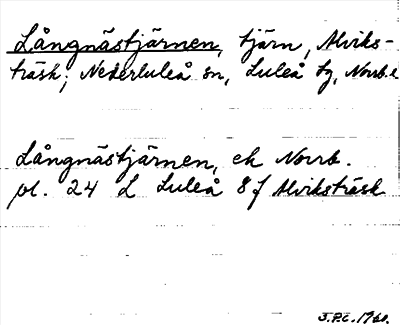 Långnästjärnen, tjärn, Alviks-
träsk; Nederluleå sn, Luleå tg, Norrb. l
Långnästjärnen, ek Norrb.
pl. 24 L Luleå 8 f Alviksträsk
J.P.C. 1960.